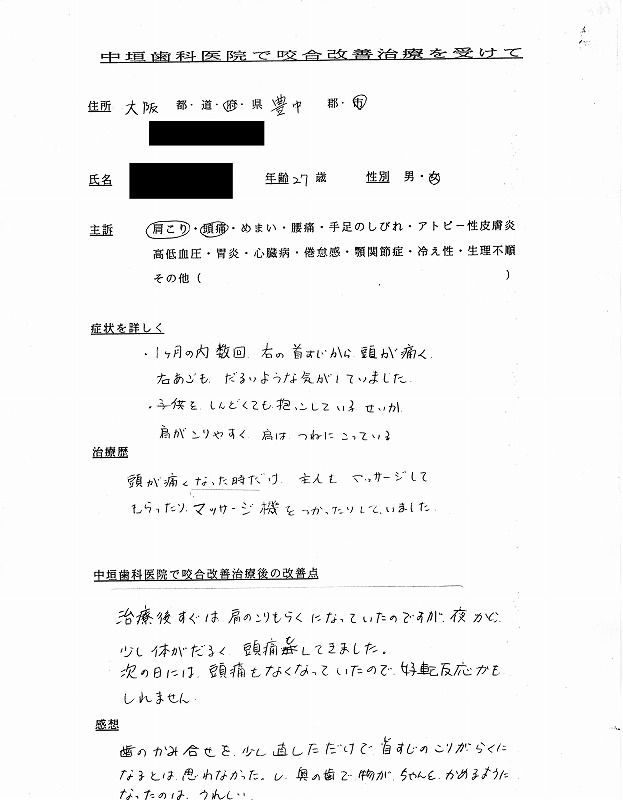 中垣歯科医院で咬合改善治療を受けて
住所 大阪 都・道・府・県 豊中 郡・市
氏名 年齢 27 歳 性別 男・女
主訴 肩こり・頭痛・めまい・腰痛・手足のしびれ・アトピー性皮膚炎
高低血圧・胃炎・心臓病・倦怠感・顎関節症・冷え性・生理不順
その他( )
症状を詳しく
・1ヶ月の内 数回、右の首すじから、頭が痛く、
右あごも、だるいような気がしていました。
・子供を、しんどくても抱っこしている せいか、
肩がこりやすく、肩は、つねにこっている
治療歴
頭が痛くなった時だけ、主人に マッサージして
もらったり、マッサージ機をつかったりしていました。
中垣歯科医院で咬合改善治療後の改善点
治療後すぐは、肩のこりもらくになっていたのですが、夜から、
少し体がだるく、頭痛もしてきました。
次の日には、頭痛もなくなっていたので、好転反応かも
しれません。
感想
歯のかみ合せを、少し直しただけで、首すじのこりがらくに
なるとは、思わなかった。し、奥の歯で物が、ちゃんと、かめるように
なったのは、うれしい